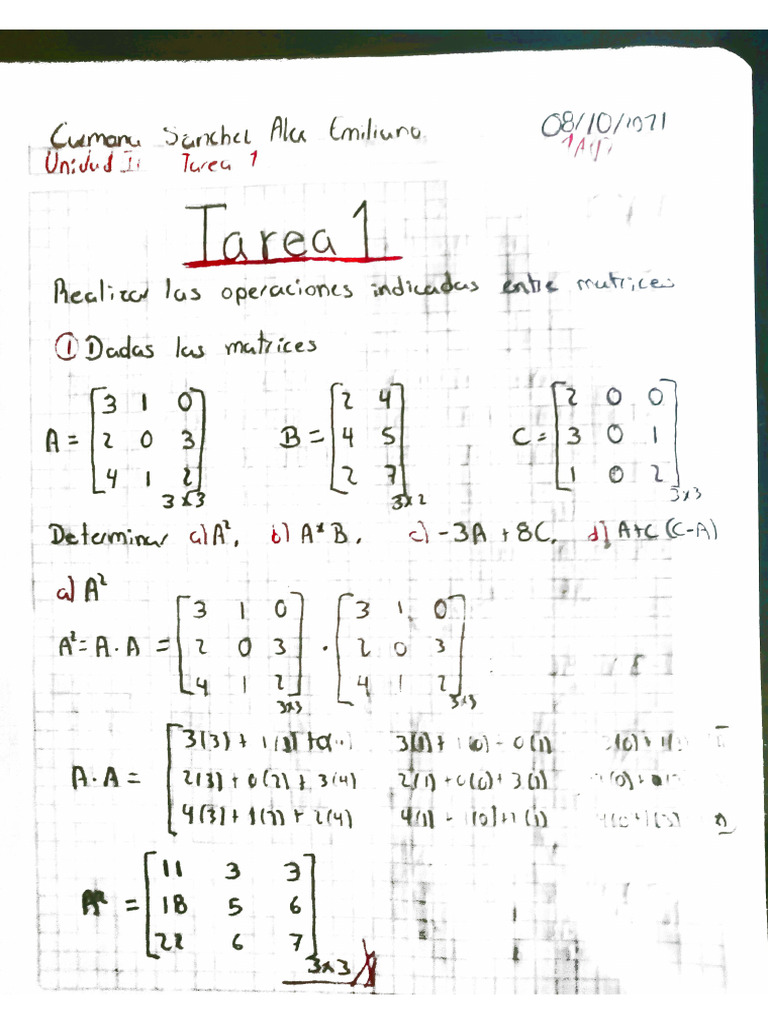 Sanchez Emiliano 08/10/
Unidad I: Tarea 1
Tarea 1
Realizar las operaciones indicadas entre matrices
① Dadas las matrices
A = [3 1 0; 2 0 3; 4 1 2] 3x3 B = [2 4; 4 5; 2 7] 3x2 C = [2 0 0; 3 0 1; 1 0 2] 3x3
Determinar a) A², b) A*B, c) -3A + 8C, d) A+C (C-A)
a) A²
A² = A·A = [3 1 0; 2 0 3; 4 1 2] 3x3 · [3 1 0; 2 0 3; 4 1 2] 3x3
A·A =
3(3) +
2(3) + 0(2) + 3(4) 2(1) + 0(0) + 3(1)
4(3) + 1(2) + 2(4) 4(1)
A² = [11 3 3; 18 5 6; 22 6 7] 3x3